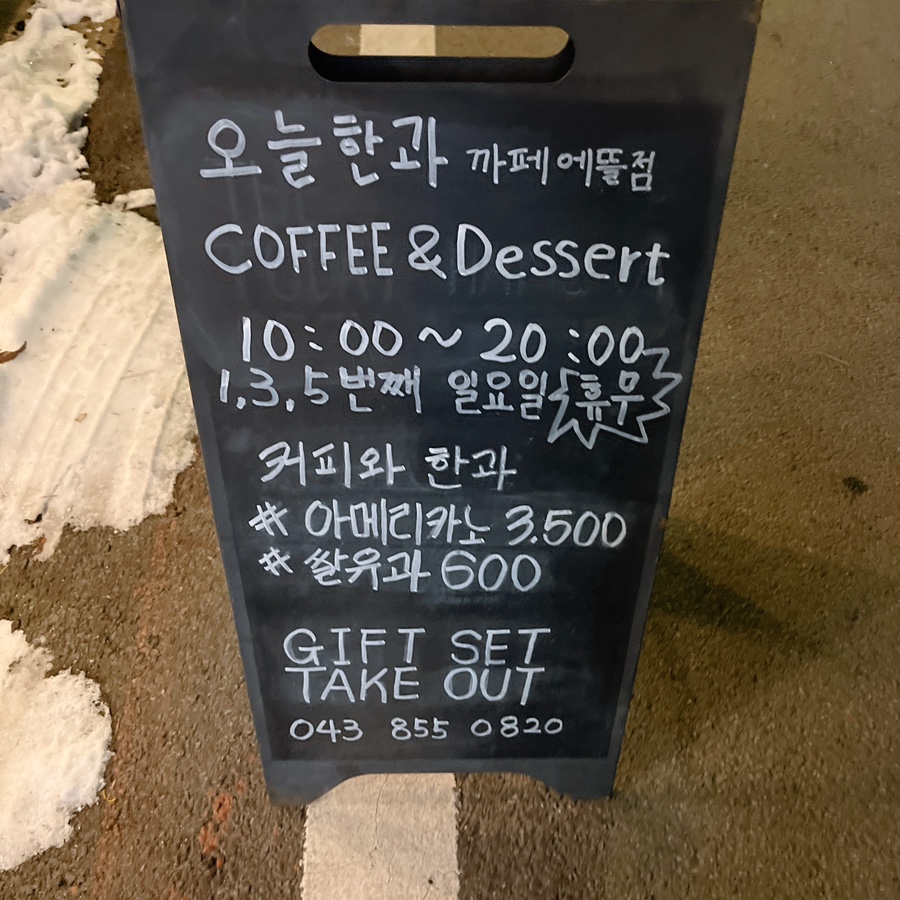 오늘한과 까페에뜰점
COFFEE & Dessert
10:00 ~ 20:00
1,3,5번째 일요일 휴무
커피와 한과
# 아메리카노 3.500
# 쌀유과 600
GIFT SET
TAKE OUT
043 855 0820